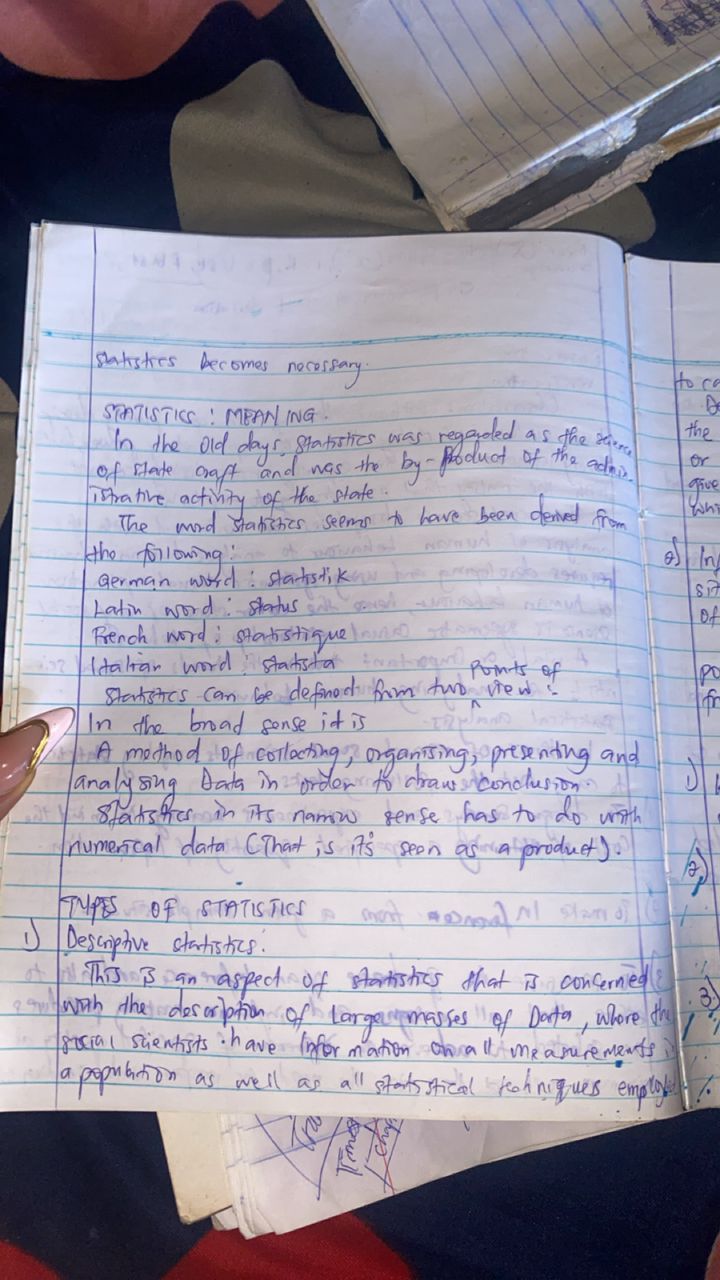 statistics becomes necessary.
STATISTICS : MEANING.
In the old days, statistics was regarded as the science
of state craft and was the by-product of the admin-
istrative activity of the state.
The word statistics seems to have been derived from
the following:
German word : statistik
Latin word : status
French word : statistique
Italian word : statista
Statistics can be defined from two points of view :
In the broad sense it is
A method of collecting, organising, presenting and
analysing Data in order to draw conclusion.
Statistics in its narrow sense has to do with
numerical data (That is it's seen as a product).
TYPES OF STATISTICS
1) Descriptive statistics.
This is an aspect of statistics that is concerned
with the description of large masses of Data, where the
social scientists have information on all measurements
a population as well as all statistical techniques
to
the
or
give
of
2)
3)